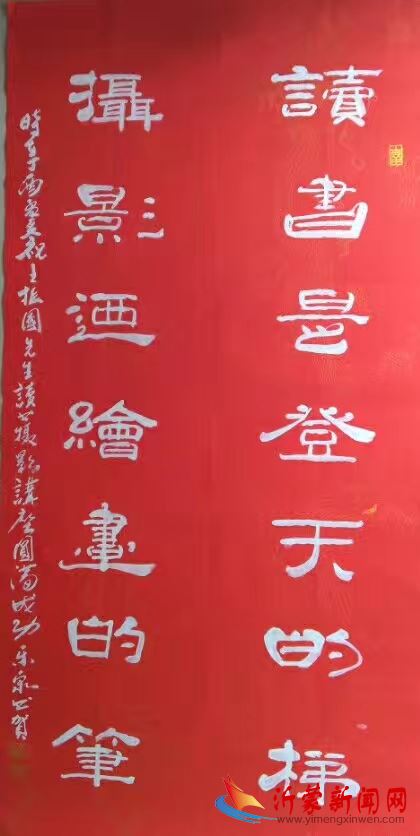 讀書是登天的梯
攝影迺繪畫的筆
時在丁酉為慶祝王振國先生讀書攝影講座圓滿成功 樂泉書賀
沂蒙新闻网
www.yimengxinwen.com